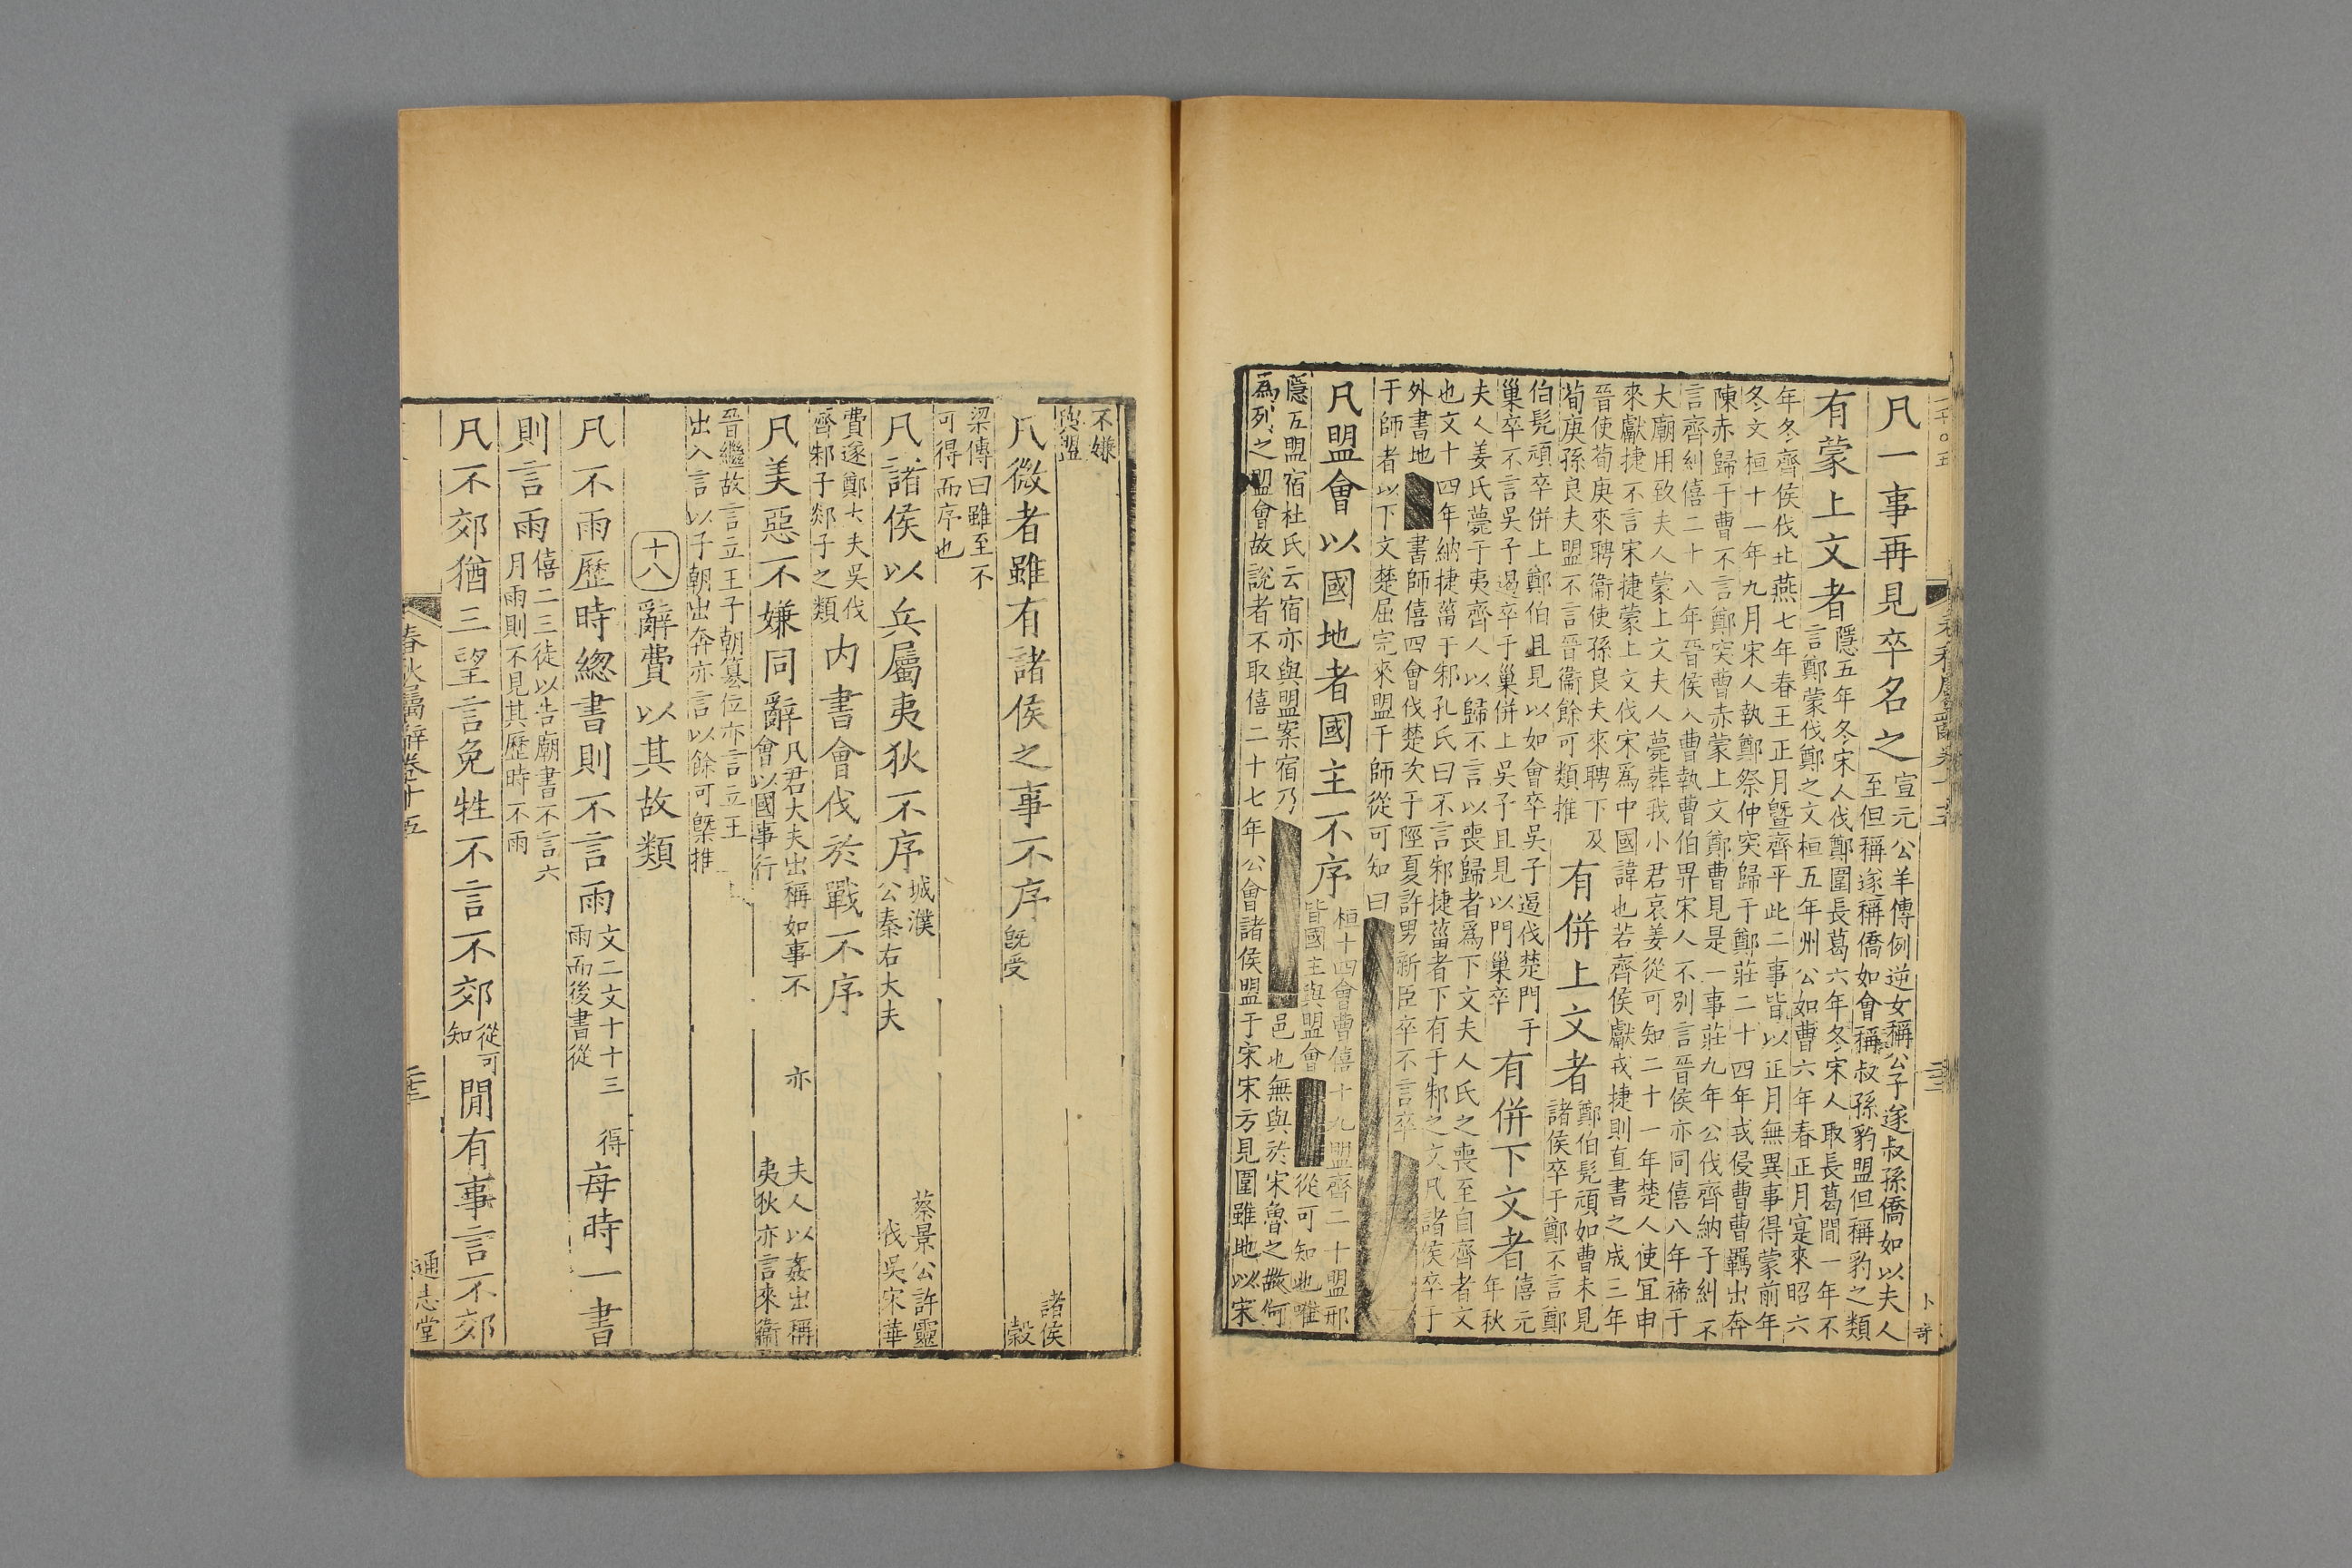 凡一事再見卒名之宣元公羊傳例逆女稱公子遂叔孫僑如以夫人
至但稱遂稱僑如會稱叔孫豹盟但稱豹之類
有蒙上文者隱五年冬宋人伐鄭圍長葛六年冬宋人取長葛間一年不
言鄭蒙伐鄭之文桓五年州公如曹六年春正月寔來昭六
年冬齊侯伐北燕七年春王正月曁齊平此二事皆以正月無異事得蒙前年
冬文桓十一年九月宋人執鄭祭仲突歸于鄭莊二十四年戎侵曹曹羈出奔
陳赤歸于曹不言鄭突曹赤蒙上文鄭曹見是一事莊九年公伐齊納子糾不
言齊糾僖二十八年晉侯入曹執曹伯畀宋人不別言晉侯亦同僖八年禘于
大廟用致夫人蒙上文夫人薨葬我小君哀姜從可知二十一年楚人使宜申
來獻捷不言宋捷蒙上文伐宋爲中國諱也若齊侯獻戎捷則直書之成三年
晉使荀庚來聘衞使孫良夫來聘下及
荀庚孫良夫盟不言晉衞餘可類推
有併上文者鄭伯髡頑如曹未見
諸侯卒于鄭不言鄭
伯髡頑卒併上鄭伯且見以如會卒吳子遏伐楚門于
巢卒不言吳子遏卒于巢併上吳子且見以門巢卒
有併下文者僖元
年秋
夫人姜氏薨于夷齊人以歸不言以喪歸者爲下文夫人氏之喪至自齊者文
也文十四年納捷菑于邾孔氏曰不言邾捷菑者下有于邾之文凡諸侯卒于
外書地
書師僖四會伐楚次于陘夏許男新臣卒不言卒
于師者以下文楚屈完來盟于師從可知曰
凡盟會以國地者國主不序桓十四會曹僖十九盟齊二十盟邢
皆國主與盟會
從可知也唯
隱五盟宿杜氏云宿亦與盟案宿乃
邑也無與於宋魯之故何
爲列之盟會故說者不取僖二十七年公會諸侯盟于宋宋方見圍雖地以宋
卜 奇
不嫌
與盟
凡微者雖有諸侯之事不序旣受
諸侯
穀
梁傳曰雖至不
可得而序也
凡諸侯以兵屬夷狄不序城濮
公秦右大夫
蔡景公許靈
伐吳宋華
費遂鄭大夫吳伐
齊邾子郯子之類
内書會伐於戰不序
凡美惡不嫌同辭凡君大夫出稱如事不
會以國事行
亦
夫人以姦出稱
夷狄亦言來衞
晉繼故言立王子朝簒位亦言立王
出入言以子朝出奔亦言以餘可槩推
十八
辭費以其故類
凡不雨歷時緫書則不言雨文二文十十三
雨而後書從
得
每時一書
則言雨僖二三徒以告廟書不言六
月雨則不見其歷時不雨
凡不郊猶三望言免牲不言不郊從可
知
閒有事言不郊
春秋屬辭卷十五
通志堂